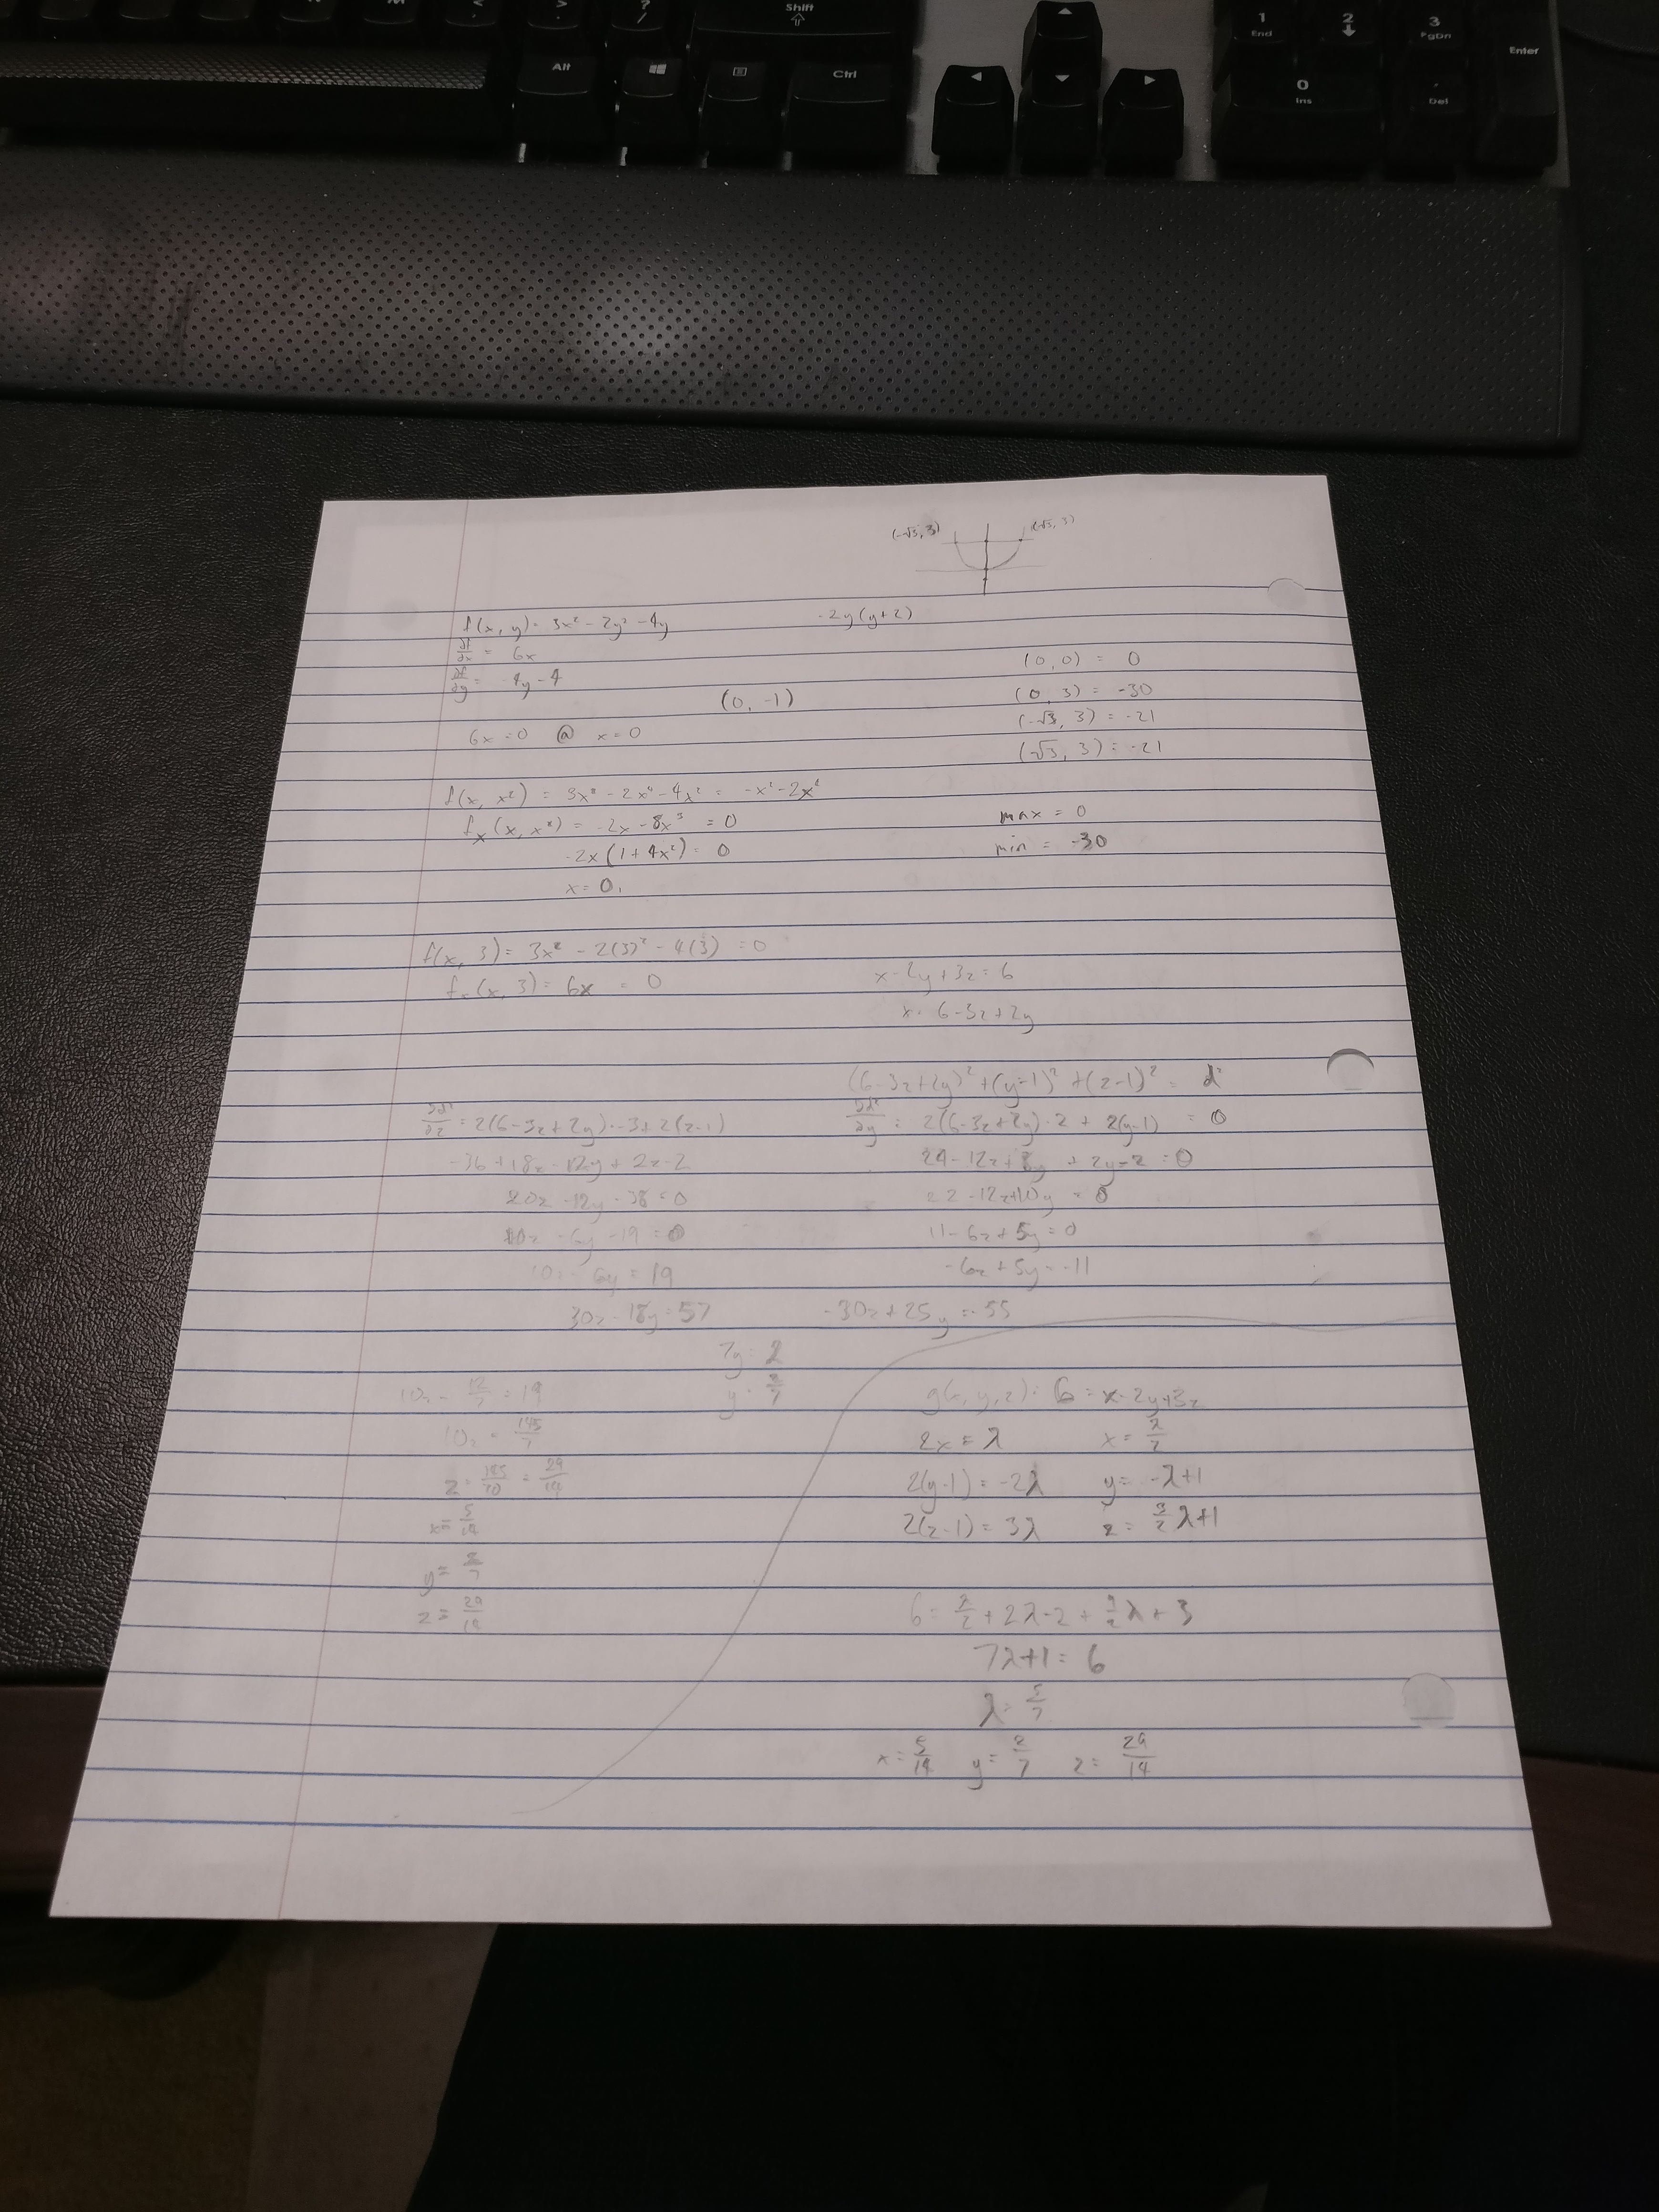 Shift
Alt
Ctrl
1 End
2
3 PgDn
Enter
0 Ins
. Del
(-√3, 3) (√3, 3)
f(x, y) = 3x² - 2y² - 4y
-2y(y+2)
∂f/∂x = 6x
∂f/∂y = -4y - 4
(0, -1)
6x = 0 @ x = 0
(0, 0) = 0
(0, 3) = -30
(-√3, 3) = -21
(√3, 3) = -21
f(x, x²) = 3x² - 2x⁴ - 4x² = -x² - 2x⁴
fₓ(x, x²) = -2x - 8x³ = 0
-2x(1 + 4x²) = 0
x = 0,
max = 0
min = -30
f(x, 3) = 3x² - 2(3)² - 4(3) = 0
fₓ(x, 3) = 6x = 0
x - 2y + 3z = 6
x = 6 - 3z + 2y
(6 - 3z + 2y)² + (y - 1)² + (z - 1)² = d²
∂d²/∂z = 2(6 - 3z + 2y) · -3 + 2(z - 1)
-36 + 18z - 12y + 2z - 2
20z - 12y - 38 = 0
10z - 6y - 19 = 0
10z - 6y = 19
30z - 18y = 57
∂d²/∂y = 2(6 - 3z + 2y) · 2 + 2(y - 1) = 0
24 - 12z + 8y + 2y - 2 = 0
22 - 12z + 10y = 0
11 - 6z + 5y = 0
-6z + 5y = -11
-30z + 25y = -55
7y = 2
y = 2/7
10z - 12/7 = 19
10z = 145/7
z = 145/70 = 29/14
x = 5/14
y = 2/7
z = 29/14
g(x, y, z) = 6 = x - 2y + 3z
2x = λ x = λ/2
2(y - 1) = -2λ y = -λ + 1
2(z - 1) = 3λ z = 3/2 λ + 1
6 = λ/2 + 2λ - 2 + 9/2 λ + 3
7λ + 1 = 6
λ = 5/7
x = 5/14 y = 2/7 z = 29/14